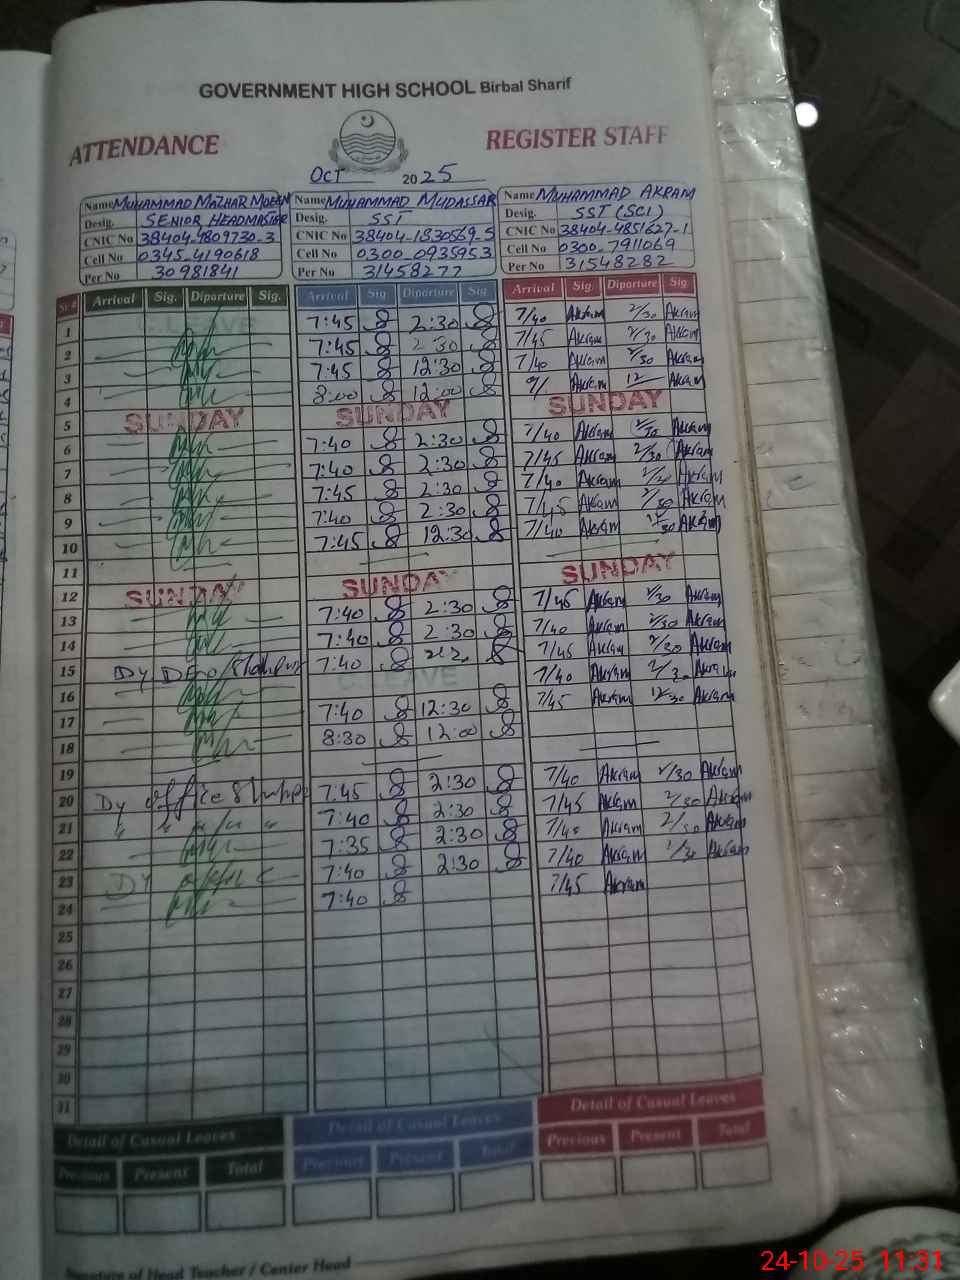 GOVERNMENT HIGH SCHOOL Birbal Sharif
ATTENDANCE REGISTER STAFF
OCT 2025
Name MUHAMMAD MAZHAR MOEEN Name MUHAMMAD MUDASSAR Name MUHAMMAD AKRAM
Desig. SENIOR HEADMASTER Desig. SST Desig. SST (SCI)
CNIC No 38404-4809730-3 CNIC No 38404-1830569-5 CNIC No 38404-4851627-1
Cell No 0345-4190618 Cell No 0300-0935953 Cell No 0300-7911069
Per No 30981841 Per No 31458277 Per No 31548282
Sr.# Arrival Sig. Diparture Sig. Arrival Sig Diparture Sig. Arrival Sig Diparture Sig.
1 C.LEAVE 7:45 2:30 7/40 Akram 2/30 Akram
2 7:45 2:30 7/45 Akram 2/30 Akram
3 7:45 12:30 7/40 Akram Akram
4 8:00 12:00 9/ Akram 12 Akram
5 SUNDAY SUNDAY SUNDAY
6 7:40 2:30 7/40 Akram Akram
7 7:40 2:30 7/45 Akram 2/30 Akram
8 7:45 2:30 7/40 Akram Akram
9 7:40 2:30 7/45 Akram Akram
10 7:45 12:30 7/40 Akram Akram
11
12 SUNDAY SUNDAY SUNDAY
13 7:40 2:30 7/45 Akram 2/30 Akram
14 7:40 2:30 7/40 Akram 2/30 Akram
15 Dy 7:40 7/45 Akram 2/30 Akram
16 C.LEAVE 7/40 Akram Akram
17 7:40 12:30 7/45 Akram 12/30 Akram
18 8:30 12:00
19
20 Dy office 7:45 2:30 7/40 Akram 2/30 Akram
21 " " " " 7:40 2:30 7/45 Akram 2/30 Akram
22 7:35 2:30 7/40 Akram Akram
23 Dy 7:40 2:30 7/40 Akram Akram
24 7:40 7/45 Akram
25
26
27
28
29
30
31
Detail of Casual Leaves Detail of Casual Leaves Detail of Casual Leaves
Previous Present Total Previous Present Total Previous Present Total
Signature of Head Teacher / Center Head
24-10-25 11:31